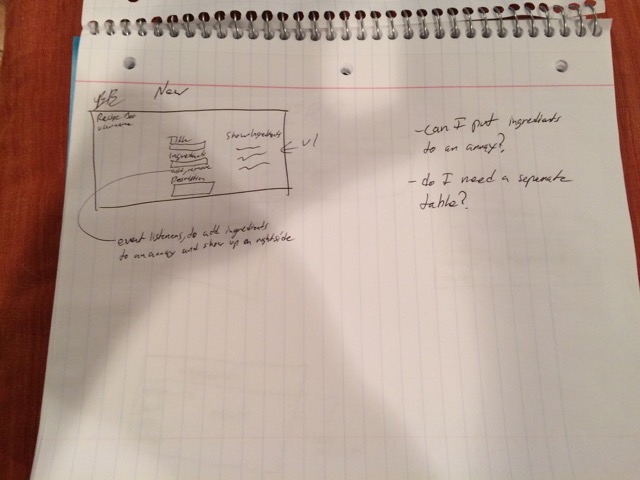 New
Recipe Box
username
Title
Ingredients
add, remove
Description
Show Ingredients
ul
event listeners, to add ingredients
to an array and show up on rightside
- can I put ingredients
to an array?
- do I need a separate
table?